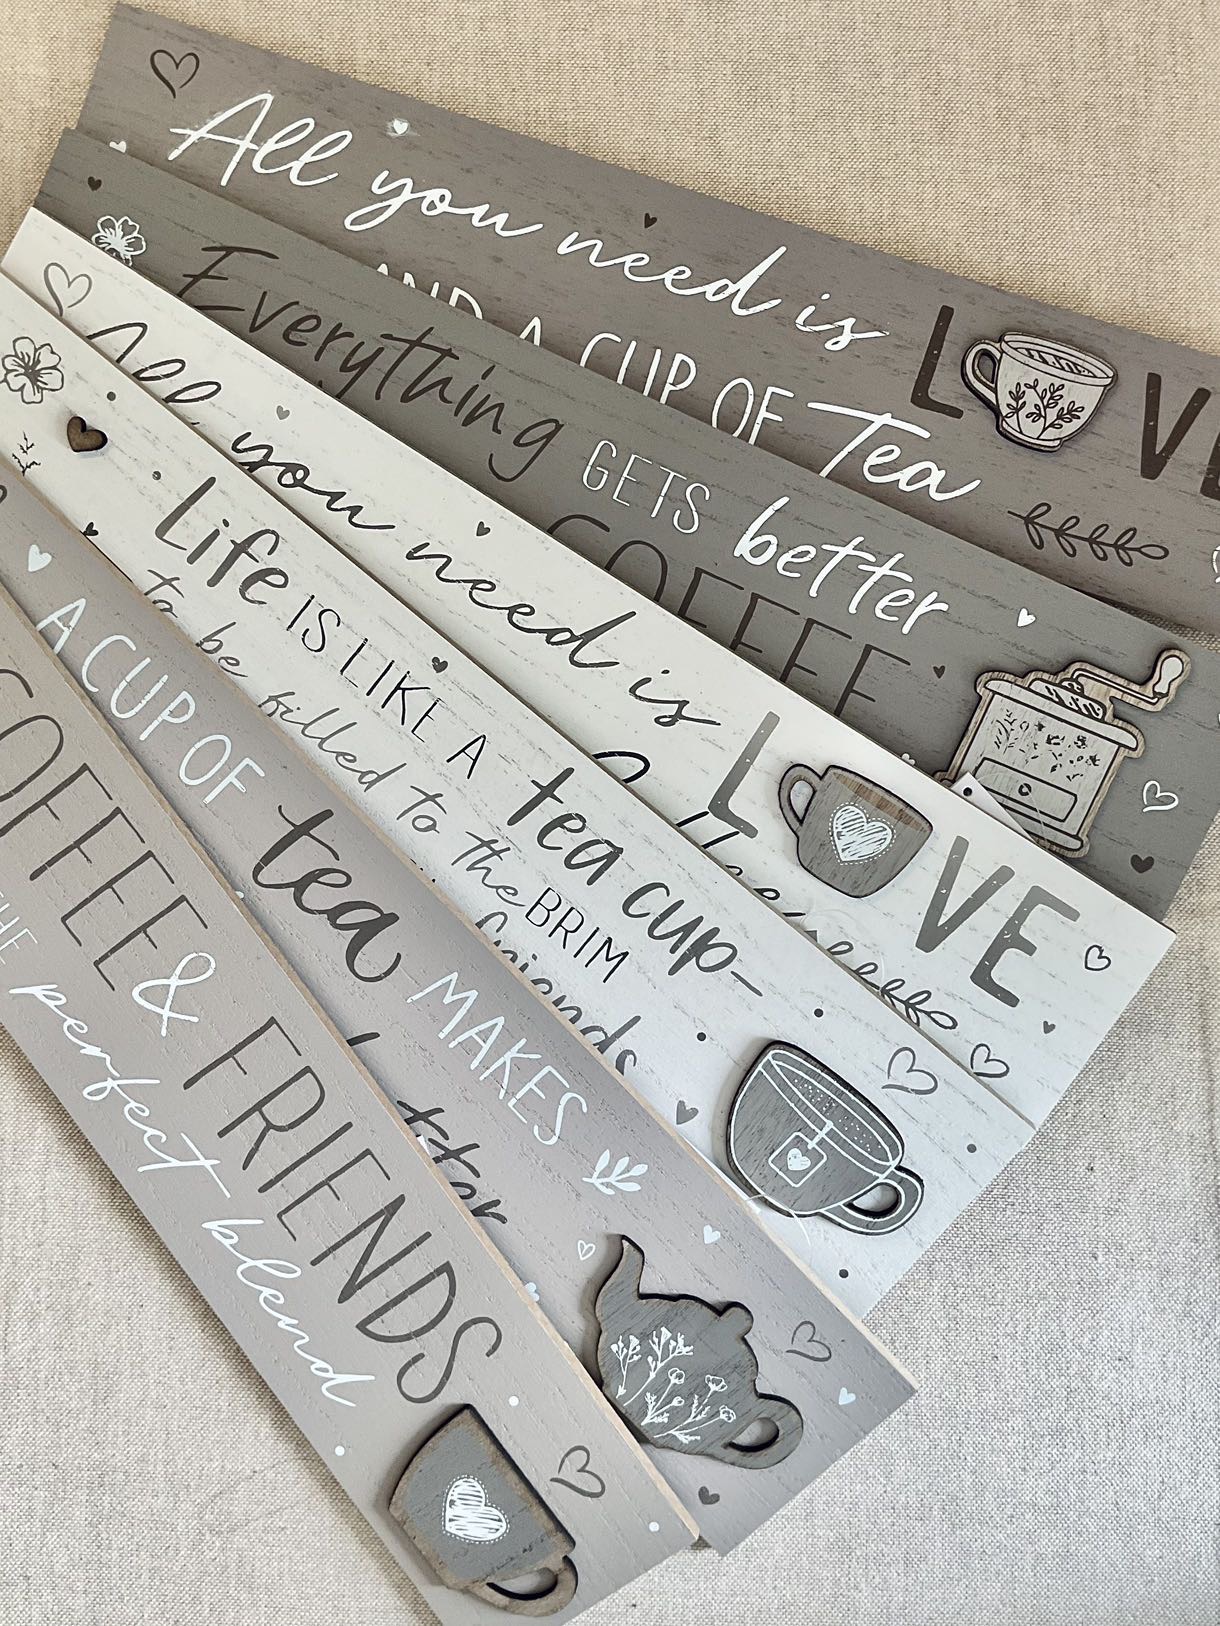 All you need is L VE
AND A CUP OF Tea
Everything GETS better
COFFEE
All you need is L VE
Life IS LIKE A tea cup-
to be filled to the BRIM
friends
A CUP OF tea MAKES
COFFEE & FRIENDS
THE perfect blend